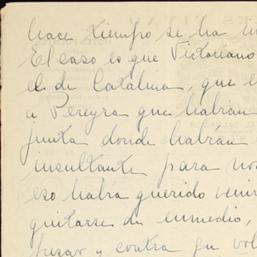 hace tiempo se ha
El caso es que Victoriano
el de Catalina, que
a Pereyra que habían
junta donde habían
insultante para
eso había querido
quitarse de enmedio,
pesar y contra su